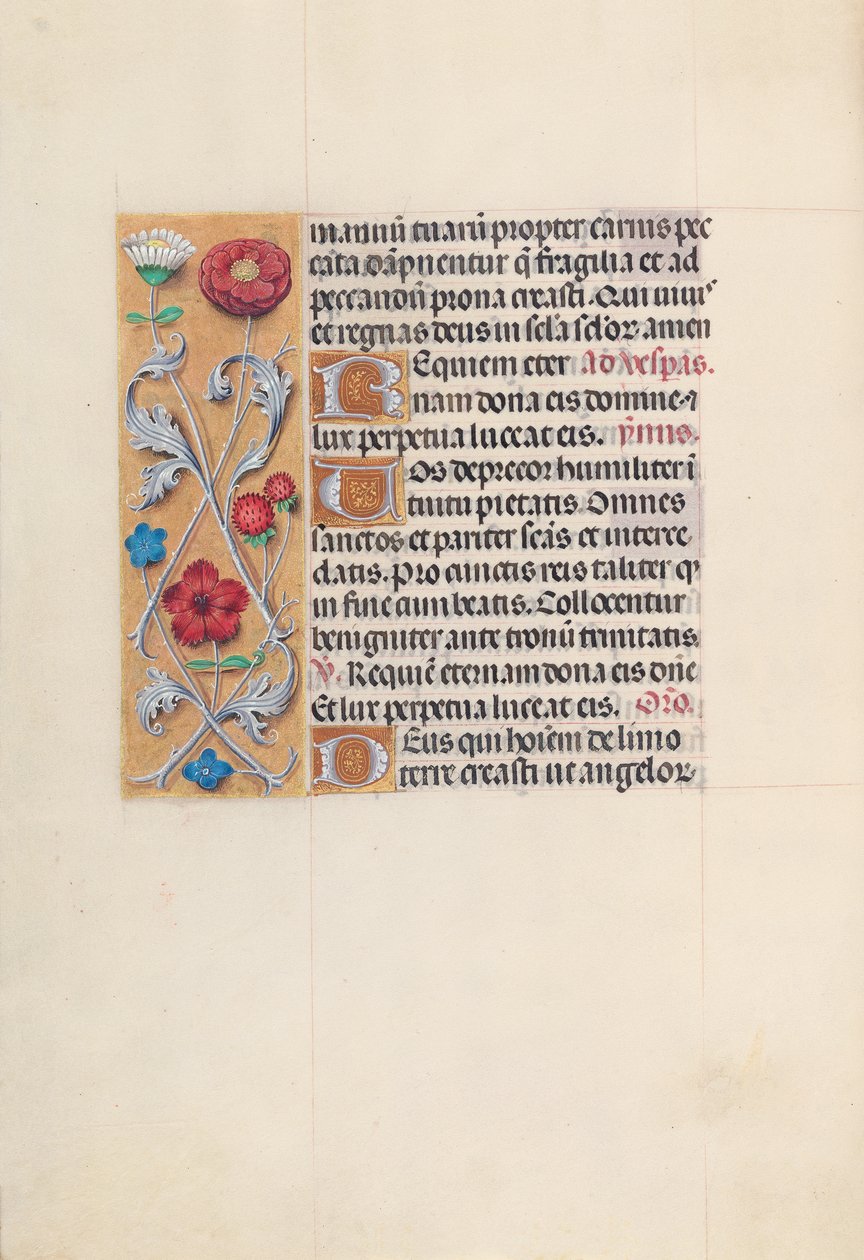 manuū tuarū propter carnis pec
cata dāpnentur q̄ fragilia et ad
peccandū prona creasti. Qui viuis
et regnas deus in scl̄a scl̄or. amen
Requiem eter ad vespas.
nam dona eis domine. ⁊
lux perpetua luceat eis. ẏmnis.
Vos deprecor humiliter ī
tuitu pietatis. Omnes
sanctos et pariter scās et interce
datis. pro cunctis reis taliter q̄
in fine cum beatis. Collocentur
benigniter ante tronū trinitatis.
v̄. Requiē eternam dona eis dn̄e
Et lux perpetua luceat eis. Orō.
Deus qui hoīem de limo
terre creasti ut angelor